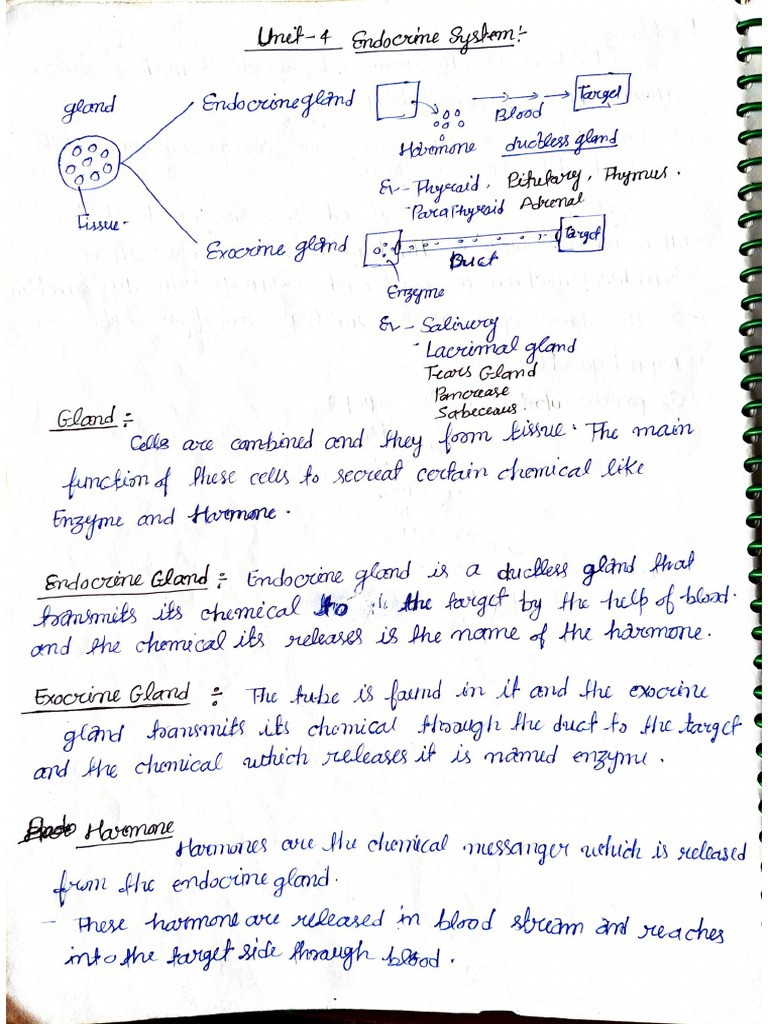 Unit-4 Endocrine System:-
gland
Endocrine gland
Blood
Target
Harmone ductless gland
Ex- Thyraid, Pitutary, Thymus.
ParaThyroid Adrenal
Tissue.
Exocrine gland
Target
Duct
Enzyme
Ex- Salivery
Lacrimal gland
Tears Gland
Pancrease
Sabeceaus.
Gland:-
Cells are combined and they form tissue. The main
function of these cells to secreat certain chemical like
Enzyme and Harmone.
Endocrine Gland:- Endocrine gland is a ductless gland that
transmits its chemical to the target by the help of blood.
and the chemical its releases is the name of the harmone.
Exocrine Gland:- The tube is found in it and the exocrine
gland transmits its chemical through the duct to the target
and the chemical which releases it is named enzyme.
Harmone
Harmones are the chemical messanger which is released
from the endocrine gland.
- These harmone are released in blood stream and reaches
into the target side through blood.